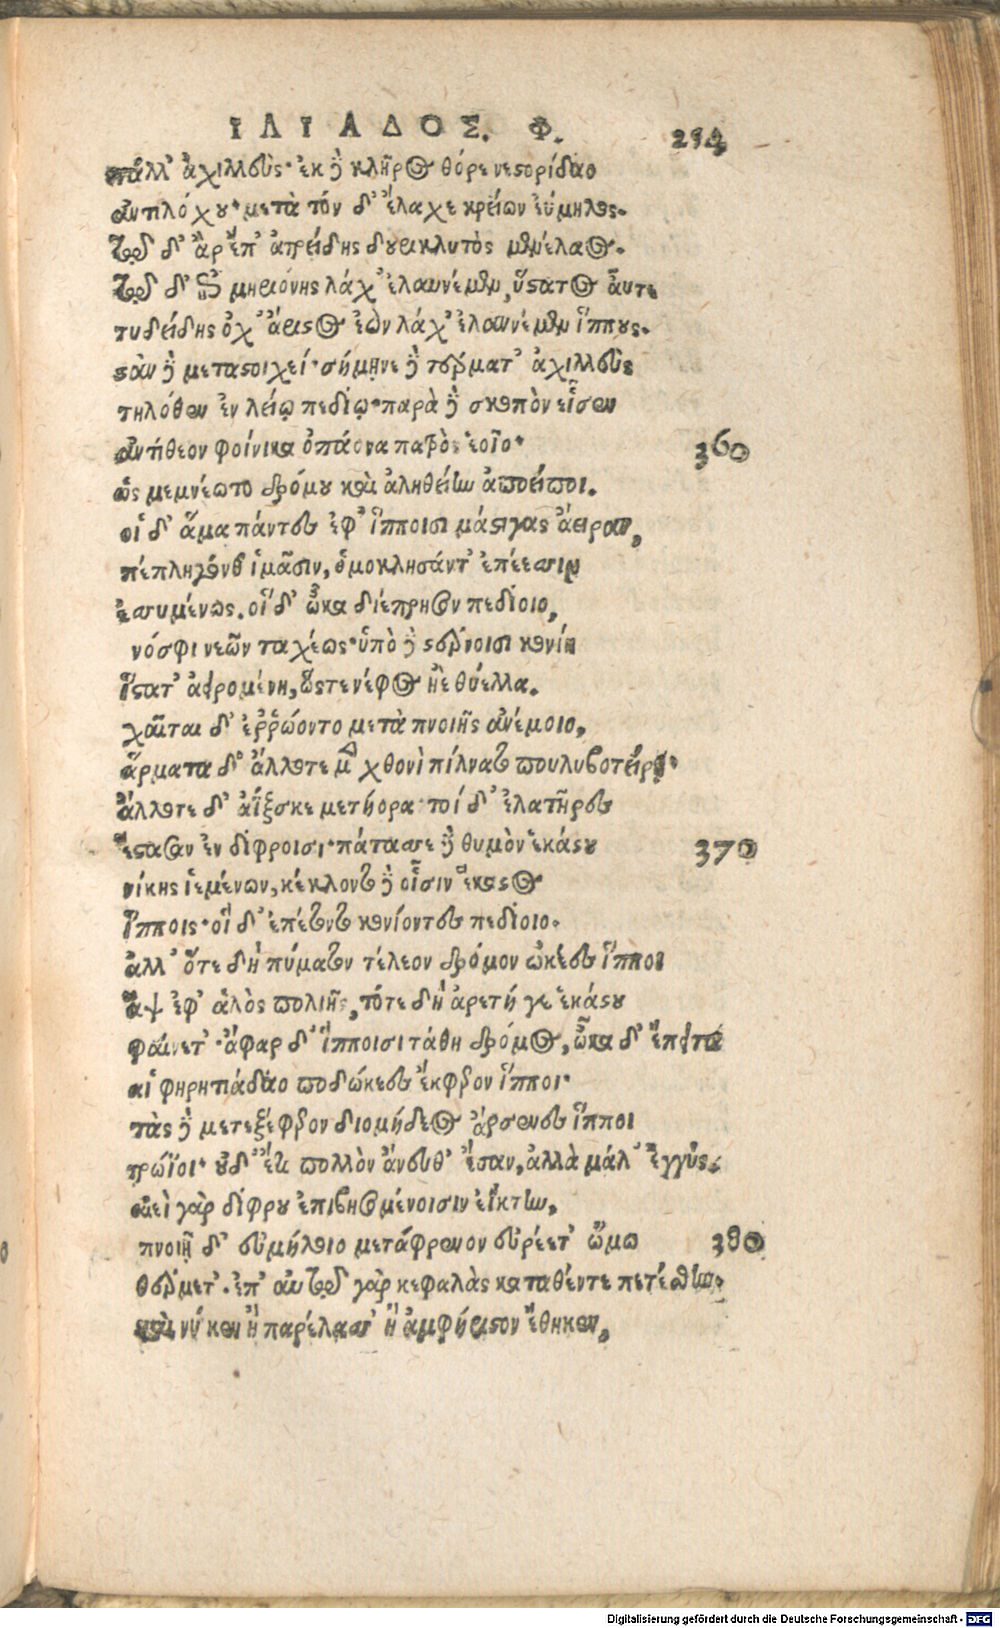 ΙΛΙΑΔΟΣ. Φ. 294
πάλλ' ἀχιλλεύς· ἐκ δὲ κλῆρος θόρε νεστορίδαο
ἀντιλόχου· μετὰ τόν δ' ἔλαχε κρείων εὔμηλος·
τῷ δ' ἂρ ἔπ' ἀτρείδης δουρικλυτὸς μενέλαος.
τῷ δ' ἐπὶ μηριόνης λάχ' ἐλαυνέμεν, ὕστατος αὖτε
τυδείδης ὄχ' ἄριστος ἐὼν λάχ' ἐλαυνέμεν ἵππους.
στὰν δὲ μεταστοιχεί· σήμηνε δὲ τέρματ' ἀχιλλεὺς
τηλόθεν ἐν λείῳ πεδίῳ· παρὰ δὲ σκοπὸν εἷσεν
ἀντίθεον φοίνικα ὀπάονα πατρὸς ἑοῖο· 360
ὡς μεμνέωτο δρόμου καὶ ἀληθείην ἀποείποι.
οἱ δ' ἅμα πάντες ἐφ' ἵπποισι μάστιγας ἄειραν,
πέπληγόν θ' ἱμᾶσιν, ὁμοκλησάντ' ἐπέεσσιν
ἐσσυμένως. οἱ δ' ὦκα διέπρησσον πεδίοιο,
νόσφι νεῶν ταχέως· ὑπὸ δὲ στέρνοισι κονίη
ἵστατ' ἀειρομένη, ὥστε νέφος ἠὲ θύελλα.
χαῖται δ' ἐῤῥώοντο μετὰ πνοιῇς ἀνέμοιο,
ἅρματα δ' ἄλλοτε μὲν χθονὶ πίλνατο πουλυβοτείρῃ·
ἄλλοτε δ' ἀΐξασκε μετήορα· τοί δ' ἐλατῆρες
ἕστασαν ἐν δίφροισι· πάτασσε δὲ θυμὸν ἑκάστου 370
νίκης ἱεμένων, κέκλοντο δὲ οἷσιν ἕκαστος
ἵπποις· οἵ δ' ἐπέτοντο κονίοντες πεδίοιο.
ἀλλ' ὅτε δὴ πύματον τέλεον δρόμον ὠκέες ἵπποι
ἂψ ἐφ' ἁλὸς πολιῆς, τότε δὴ ἀρετή γε ἑκάστου
φαίνετ'· ἄφαρ δ' ἵπποισι τάθη δρόμος, ὦκα δ' ἔπειτα
αἱ φηρητιάδαο ποδώκεες ἔκφερον ἵπποι·
τὰς δὲ μετεξέφερον διομήδεος ἄρσενες ἵπποι
τρώϊοι· οὐδ' ἔτι πολλὸν ἄνευθ' ἔσαν, ἀλλὰ μάλ' ἐγγύς.
αἰεὶ γὰρ δίφρου ἐπιβησομένοισιν ἐΐκτην,
πνοιῇ δ' εὐμήλοιο μετάφρενον εὐρέετ' ὤμω 380
θέρμετ'. ἐπ' αὐτῷ γὰρ κεφαλὰς καταθέντε πετέσθην.
καὶ νύ κεν ἢ παρέλασσ' ἢ ἀμφήριστον ἔθηκεν,
Digitalisierung gefördert durch die Deutsche Forschungsgemeinschaft - DFG